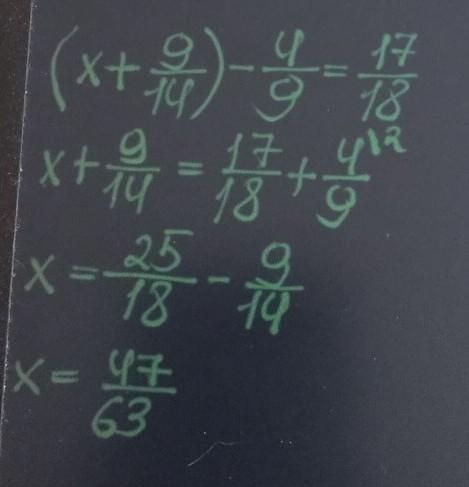 (x+9/14)-4/9=17/18
x+9/14=17/18+4\2/9
x=25/18-9/14
x=47/63